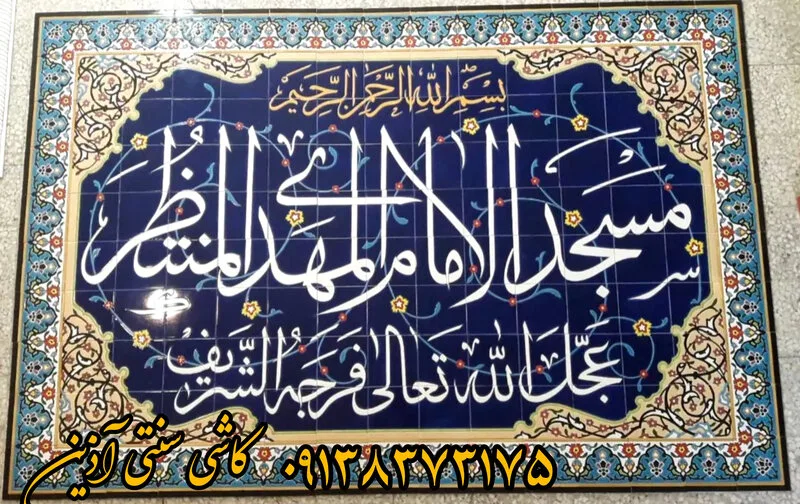 بسم الله الرحمن الرحیم
مسجد الامام المهدی المنتظر
عجل الله تعالی فرجه الشریف
کاشی سنتی آذین ۰۹۱۳۸۳۷۳۱۷۵